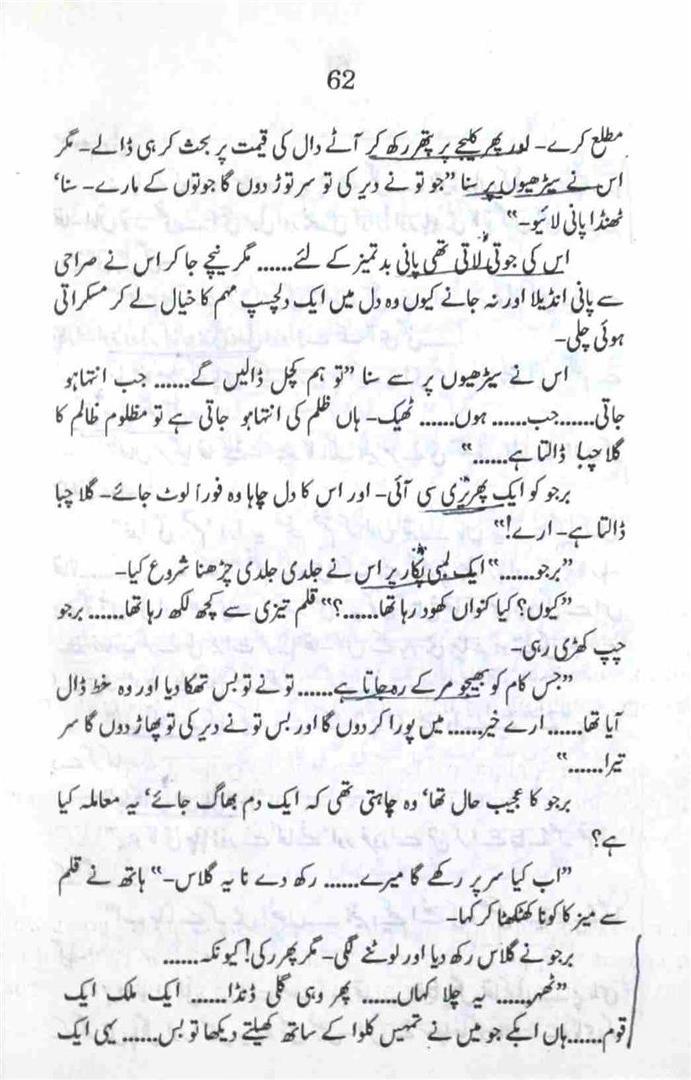 62
مطلع کرے۔ اور پھر کلیجے پر پتھر رکھ کر آٹے دال کی قیمت پر بحث کر ہی ڈالے۔ مگر
اس نے سیڑھیوں پر سنا ”جو تو نے دیر کی تو سر توڑ دوں گا جوتوں کے مارے۔ سنا‘
ٹھنڈا پانی لائیو۔“
اس کی جوتی لاتی تھی پانی بدتمیز کے لئے...... مگر نیچے جا کر اس نے صراحی
سے پانی انڈیلا اور نہ جانے کیوں وہ دل میں ایک دلچسپ مہم کا خیال لے کر مسکراتی
ہوئی چلی۔
اس نے سیڑھیوں پر سے سنا ”تو ہم کچل ڈالیں گے...... جب انتہا ہو
جاتی......جب...... ہوں...... ٹھیک۔ ہاں ظلم کی انتہا ہو جاتی ہے تو مظلوم ظالم کا
گلا چبا ڈالتا ہے......“
برجو کو ایک پھریری سی آئی۔ اور اس کا دل چاہا وہ فوراً لوٹ جائے۔ گلا چبا
ڈالتا ہے۔ ارے!“
”برجو......“ ایک لمبی پکار پر اس نے جلدی جلدی چڑھنا شروع کیا۔
”کیوں؟ کیا کنواں کھود رہا تھا......؟“ قلم تیزی سے کچھ لکھ رہا تھا...... برجو
چپ کھڑی رہی۔
”جس کام کو بھیجو مر کے رہ جاتا ہے...... تو نے تو بس تھکا دیا اور وہ خط ڈال
آیا تھا...... ارے خیر...... میں پورا کر دوں گا اور بس تو نے دیر کی تو پھاڑ دوں گا سر
تیرا......“
برجو کا عجیب حال تھا‘ وہ چاہتی تھی کہ ایک دم بھاگ جائے‘ یہ معاملہ کیا
ہے؟
”اب کیا سر پر رکھے گا میرے...... رکھ دے نا یہ گلاس۔“ ہاتھ نے قلم
سے میز کا کونا کھٹکھٹا کر کہا۔
برجو نے گلاس رکھ دیا اور لوٹنے لگی۔ مگر پھر رکی! کیونکہ......
”ٹھہر...... یہ چلا کہاں...... پھر وہی گلی ڈنڈا...... ایک ملک ایک
قوم......ہاں ابکے جو میں نے تمہیں کلوا کے ساتھ کھیلتے دیکھا تو بس...... یہی ایک